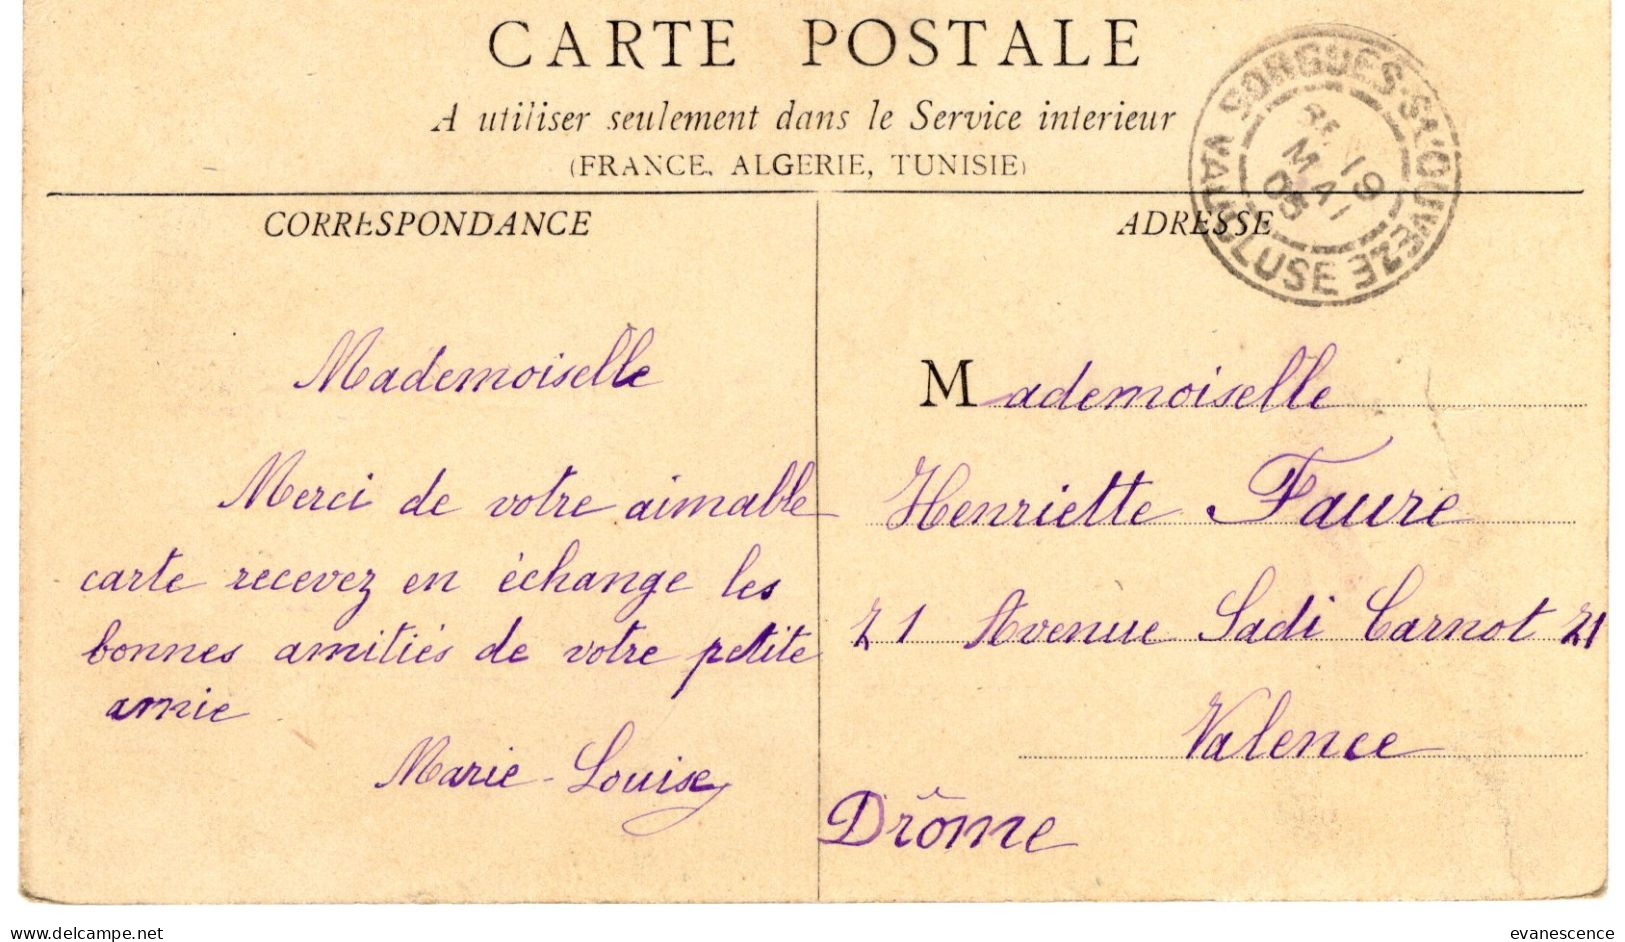 CARTE POSTALE
A utiliser seulement dans le Service interieur
(FRANCE, ALGERIE, TUNISIE)
SORGUES-St OUVEZE
19
MAI
05
VAUCLUSE
CORRESPONDANCE
Mademoiselle
Merci de votre aimable
carte recevez en échange les
bonnes amitiés de votre petite
amie
Marie-Louise
ADRESSE
Mademoiselle
Henriette Faure
21 Avenue Sadi Carnot 21
Valence
Drôme
delcampe.net
evanescence